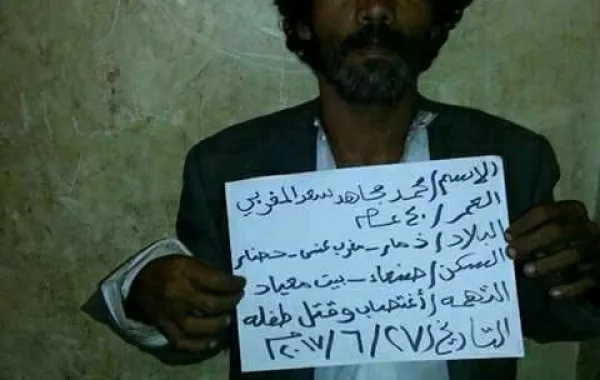 الإسم/ محمد مجاهد سعد المغربي
العمر/ ٤٠ عام
البلاد/ ذمار - مغرب عنس -
السكن/ صنعاء - بيت معياد
التهمه/ أغتصاب وقتل طفله
التاريخ/ ٢٧/ ٦/ ٢٠١٧م